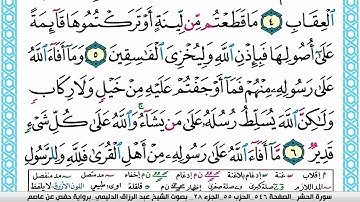 ٱلۡعِقَابِ ٤ مَا قَطَعۡتُم مِّن لِّينَةٍ أَوۡ تَرَكۡتُمُوهَا قَآئِمَةً
عَلَىٰٓ أُصُولِهَا فَبِإِذۡنِ ٱللَّهِ وَلِيُخۡزِيَ ٱلۡفَٰسِقِينَ ٥ وَمَآ أَفَآءَ ٱللَّهُ
عَلَىٰ رَسُولِهِۦ مِنۡهُمۡ فَمَآ أَوۡجَفۡتُمۡ عَلَيۡهِ مِنۡ خَيۡلٖ وَلَا رِكَابٖ
وَلَٰكِنَّ ٱللَّهَ يُسَلِّطُ رُسُلَهُۥ عَلَىٰ مَن يَشَآءُۚ وَٱللَّهُ عَلَىٰ كُلِّ شَيۡءٖ
قَدِيرٞ ٦ مَّآ أَفَآءَ ٱللَّهُ عَلَىٰ رَسُولِهِۦ مِنۡ أَهۡلِ ٱلۡقُرَىٰ فَلِلَّهِ وَلِلرَّسُولِ
سورة الحشر الصفحة ٥٤٦ الحزب ٥٥ الجزء ٢٨ بصوت الشيخ عبد الرزاق الدليمي برواية حفص عن عاصم